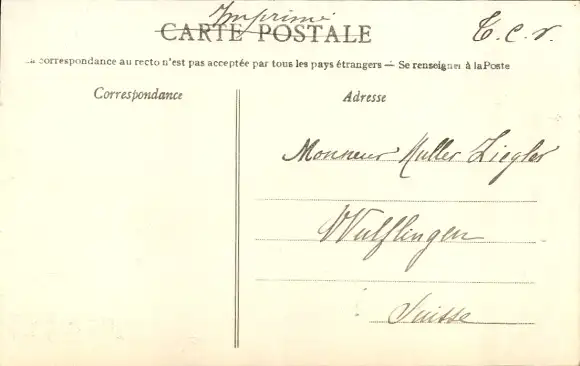 Imprimé
CARTE POSTALE
T.C.V.
La correspondance au recto n'est pas acceptée par tous les pays étrangers — Se renseigner à la Poste
Correspondance
Adresse
Monsieur Muller Ziegler
Wulflingen
Suisse